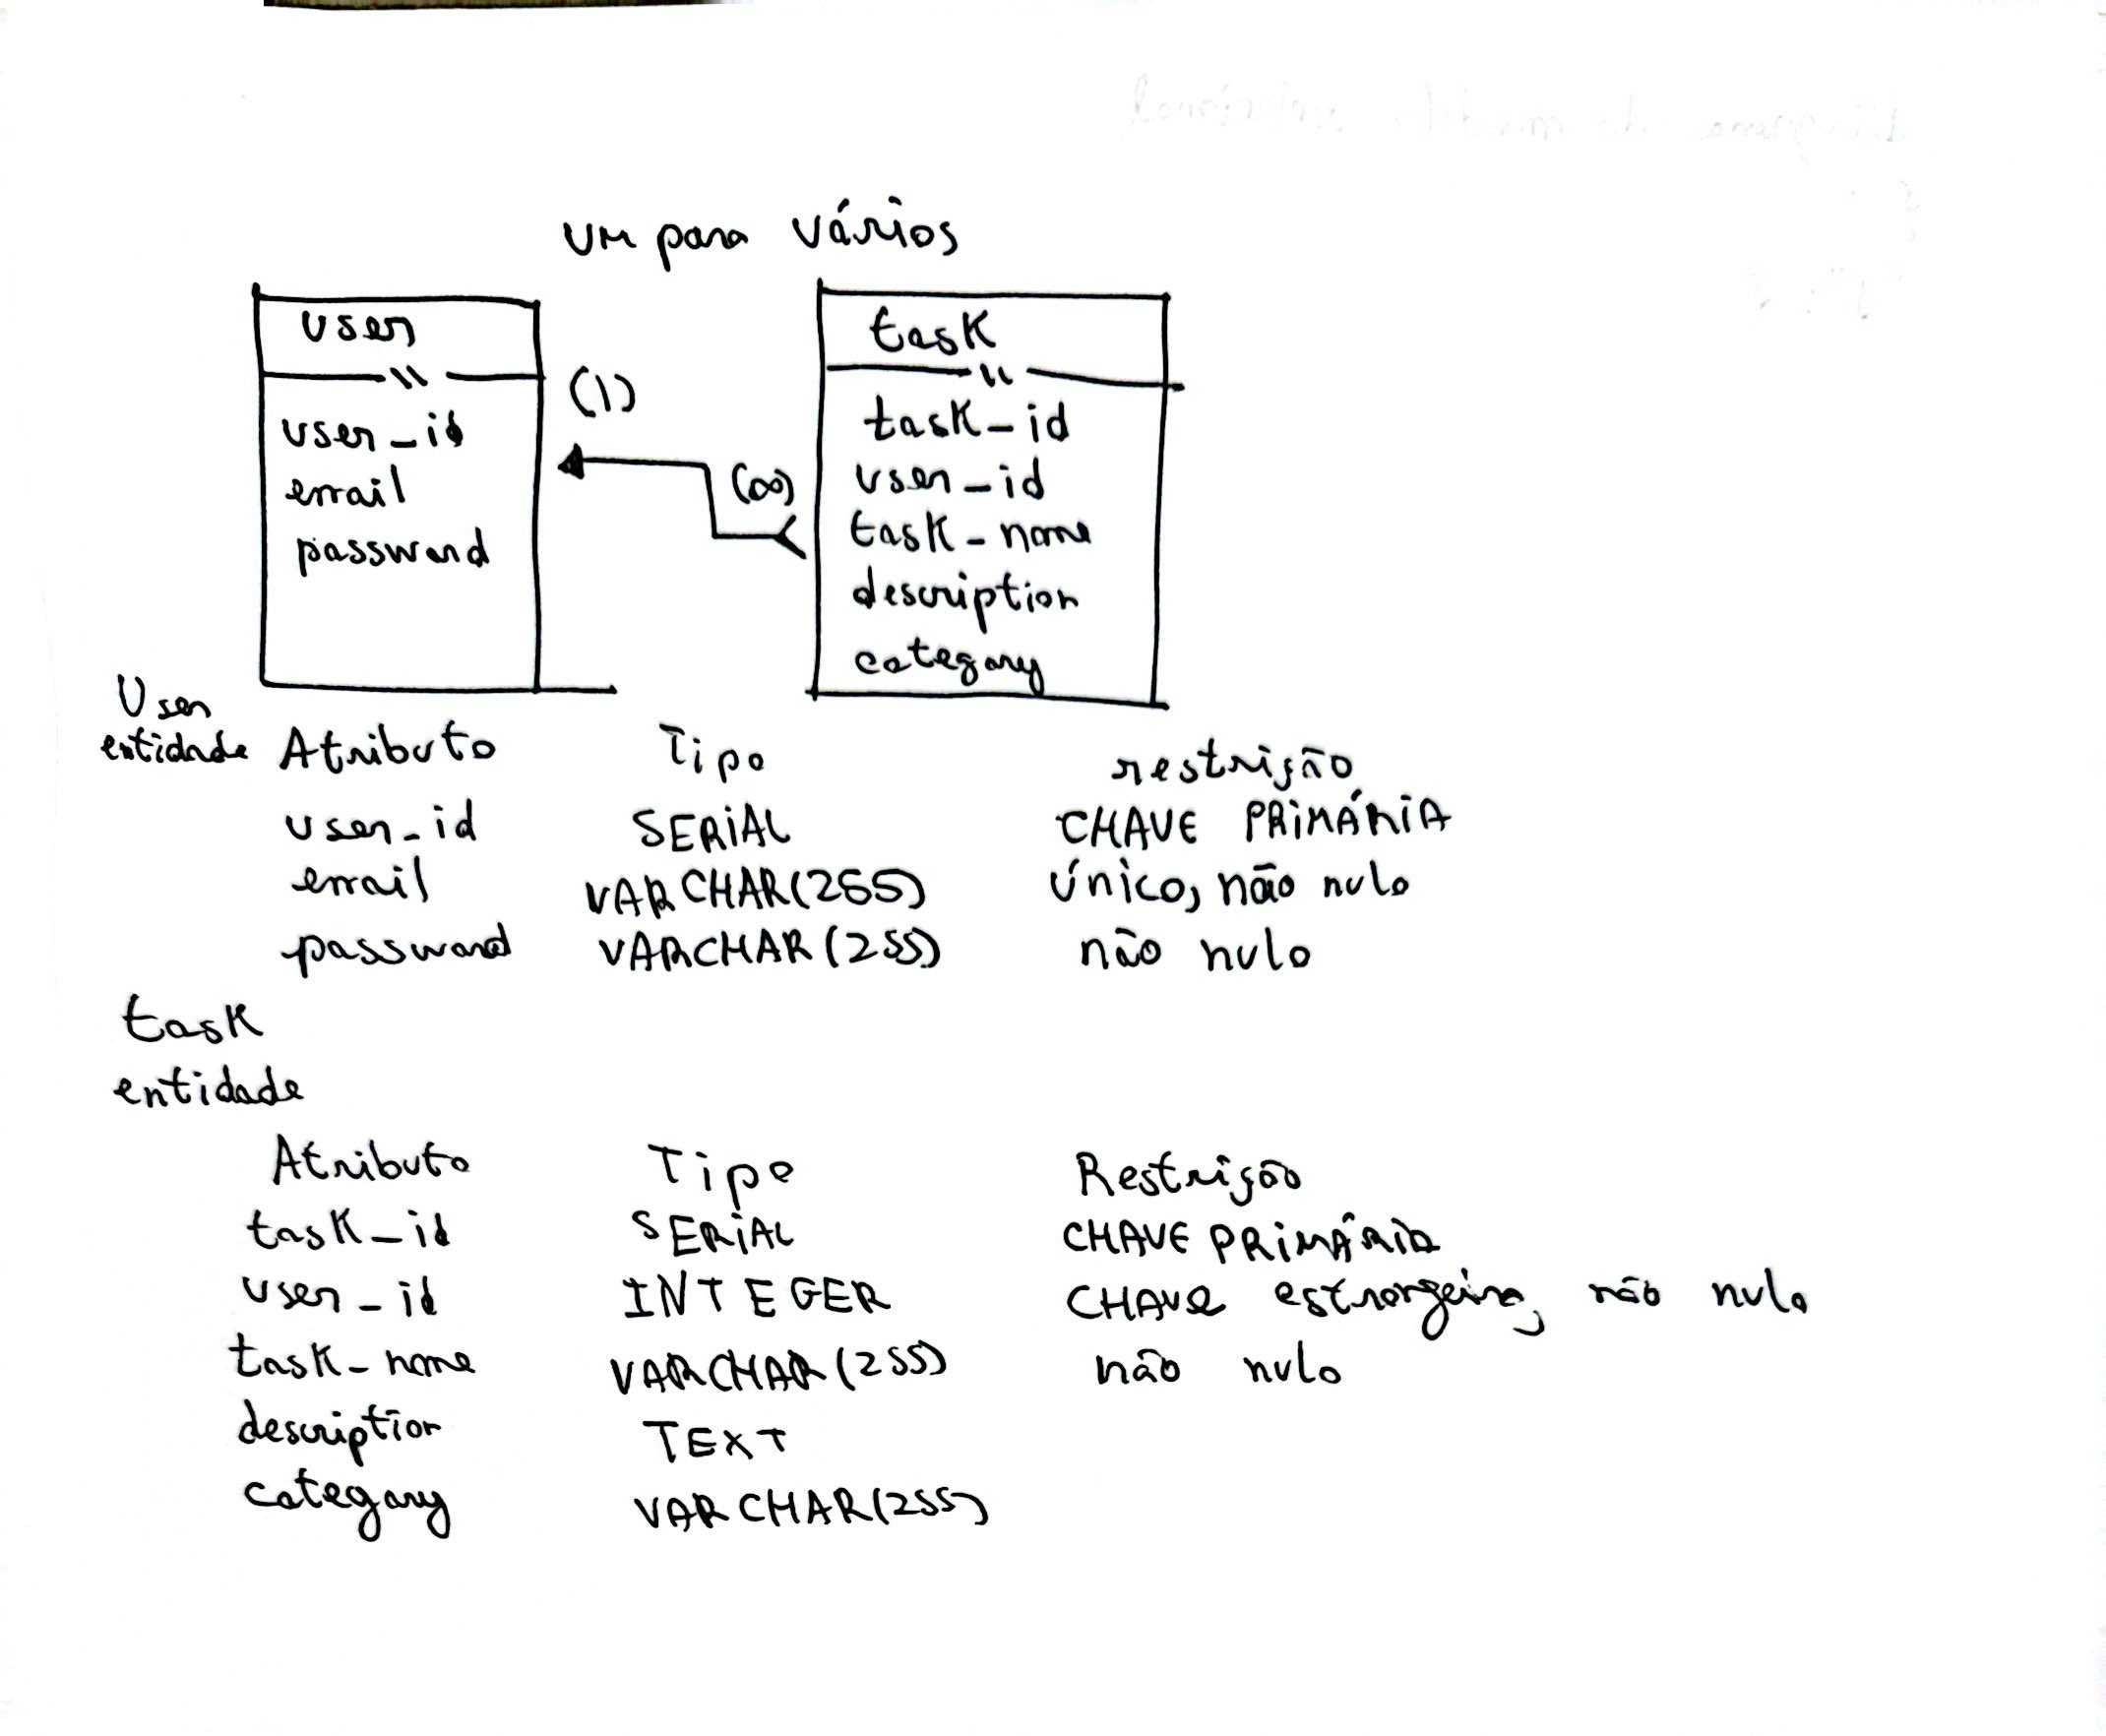 Um para vários
user
task
(1)
user_id
email
password
(∞)
task_id
user_id
task_name
description
category
User
entidade Atributo Tipo restrição
user_id SERIAL CHAVE PRIMÁRIA
email VARCHAR(255) único, não nulo
password VARCHAR(255) não nulo
task
entidade
Atributo Tipo Restrição
task_id SERIAL CHAVE PRIMÁRIA
user_id INTEGER CHAVE estrangeira, não nulo
task_name VARCHAR(255) não nulo
description TEXT
category VARCHAR(255)